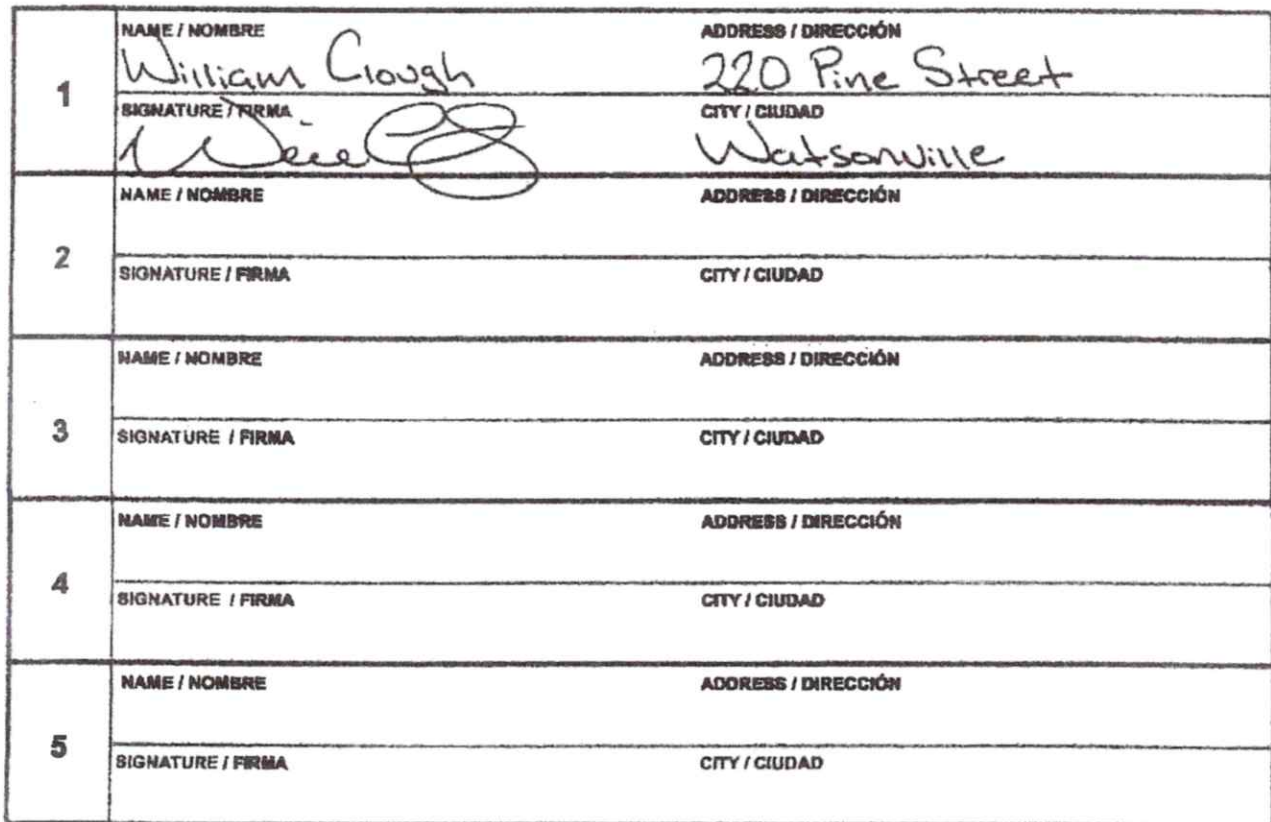 NAME / NOMBRE ADDRESS / DIRECCIÓN
William Clough 220 Pine Street
1
SIGNATURE / FIRMA CITY / CIUDAD
Watsonville
NAME / NOMBRE ADDRESS / DIRECCIÓN
2
SIGNATURE / FIRMA CITY / CIUDAD
NAME / NOMBRE ADDRESS / DIRECCIÓN
3
SIGNATURE / FIRMA CITY / CIUDAD
NAME / NOMBRE ADDRESS / DIRECCIÓN
4
SIGNATURE / FIRMA CITY / CIUDAD
NAME / NOMBRE ADDRESS / DIRECCIÓN
5
SIGNATURE / FIRMA CITY / CIUDAD